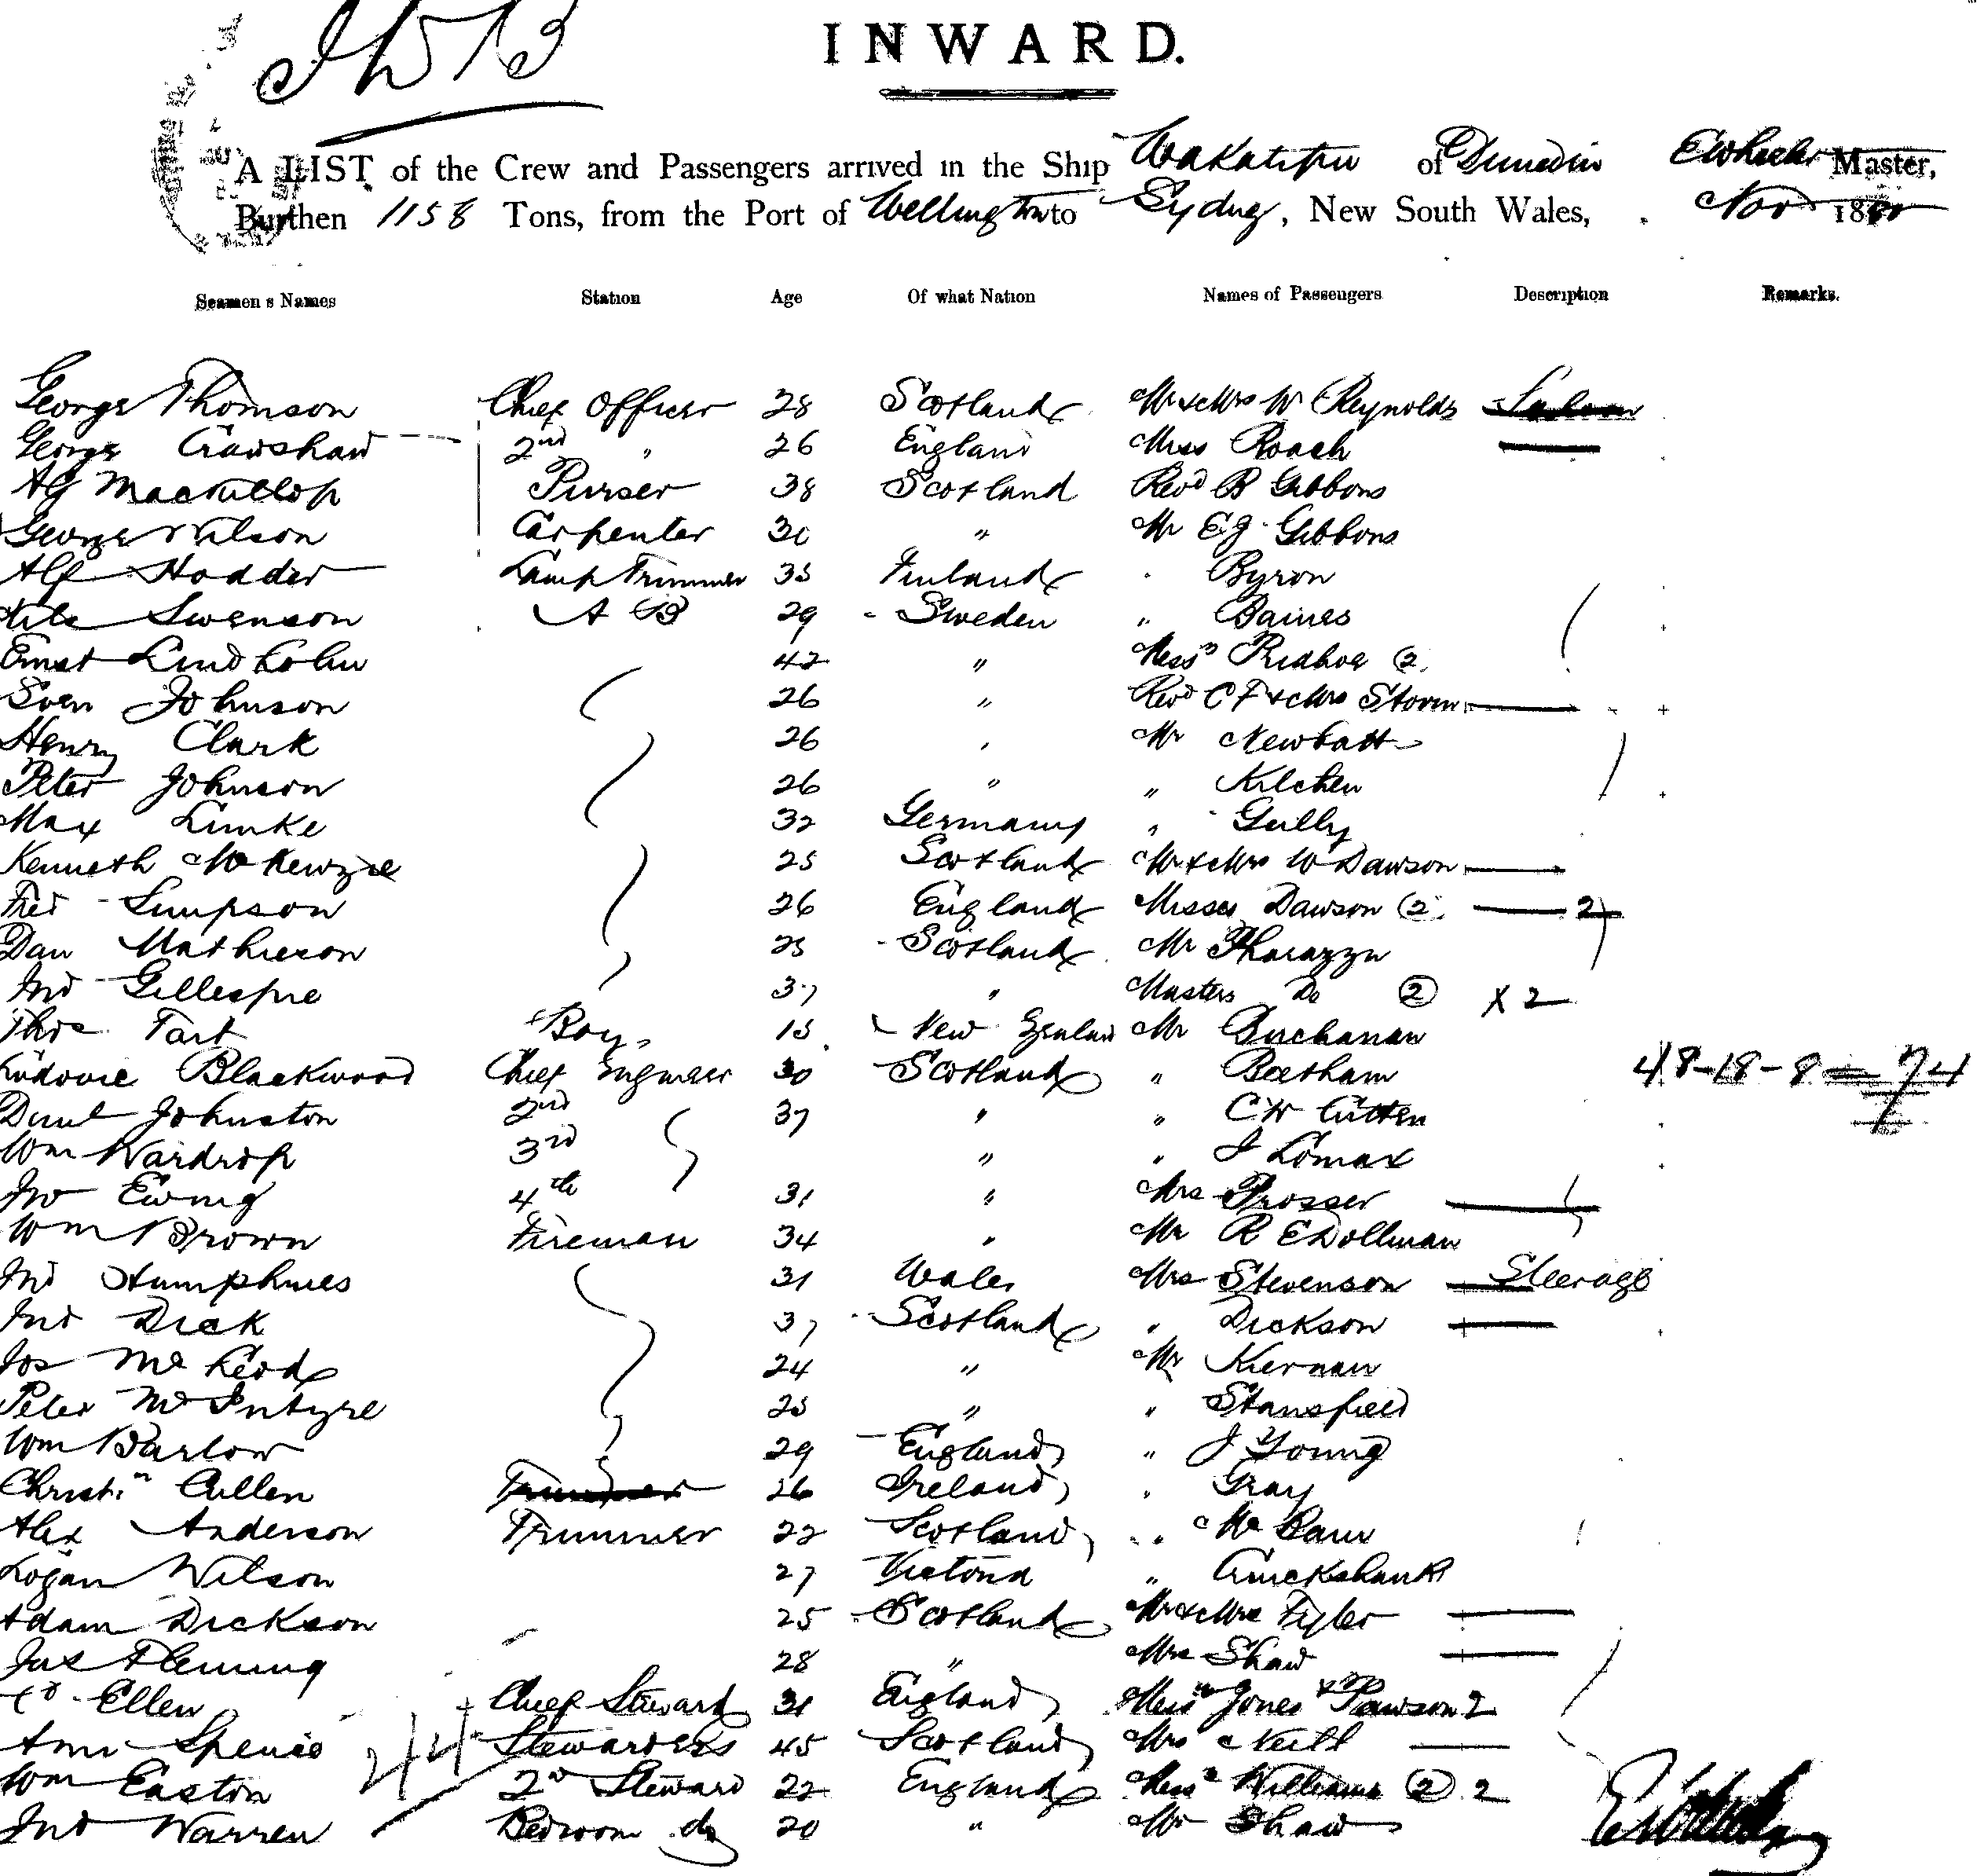 INWARD.
A LIST of the Crew and Passengers arrived in the Ship Wakatipu of Dunedin E Wheeler Master,
Burthen 1158 Tons, from the Port of Wellington to Sydney, New South Wales, Nov 188
Seamen s Names Station Age Of what Nation Names of Passengers Description Remarks.
George Thomson Chief Officer 28 Scotland Mr & Mrs W Reynolds Saloon
George Crawshaw 2nd " 26 England Miss Roach
Purser 38 Scotland Revd B Gibbons
George Wilson Carpenter " Mr E J Gibbons
Alf Hodder Lamp Trimmer 35 Finland Byron
Swenson A B 29 Sweden " Baines
Ernst Lindholm 42 " Mess (2)
Sven Johnson 26 " Revd C F & Mrs
Henry Clark 26 Mr
Peter Johnson 26 " "
Max Limke 32 Germany "
Kenneth McKenzie 25 Scotland Mr & Mrs W Dawson
Fred Simpson 26 England Misses Dawson (2) 2
Dan Mathieson 25 Scotland Mr
Jno Gillespie 37 " Masters Do (2) X 2
Boy 15 New Zealand Mr Buchanan
Blackwood Chief Engineer 30 Scotland " Beetham 48-18-8=74
Johnston 2nd 37 " " C W Cutten
Wm Wardrop 3rd " " J Lomax
Jno Ewing 4th 31 " Mrs Prosser
Wm Brown Fireman 34 " Mr R E Dollman
Jno Humphries 31 Wales Mrs Stevenson Steerage
Jno Dick 37 Scotland " Dickson
Jos McLeod 24 " Mr Kiernan
Peter McIntyre 25 " " Stansfield
Wm Barlow 29 England " J Young
Christn Cullen Trimmer 26 Ireland " Gray
Alex Anderson Trimmer 22 Scotland "
Logan Wilson 27 Victoria " Cruickshank
Adam Dickson 25 Scotland Mr & Mrs Fyler
Jas Fleming 28 " Mrs Shaw
Ellen Chief Steward 31 England Messrs Jones & Pawson 2
Spence 44 Stewardess 45 Scotland Mrs Neill
Wm Easton 2nd Steward 22 England Messrs Williams (2) 2
Jno Warren Bedroom do 20 " Mr Shaw